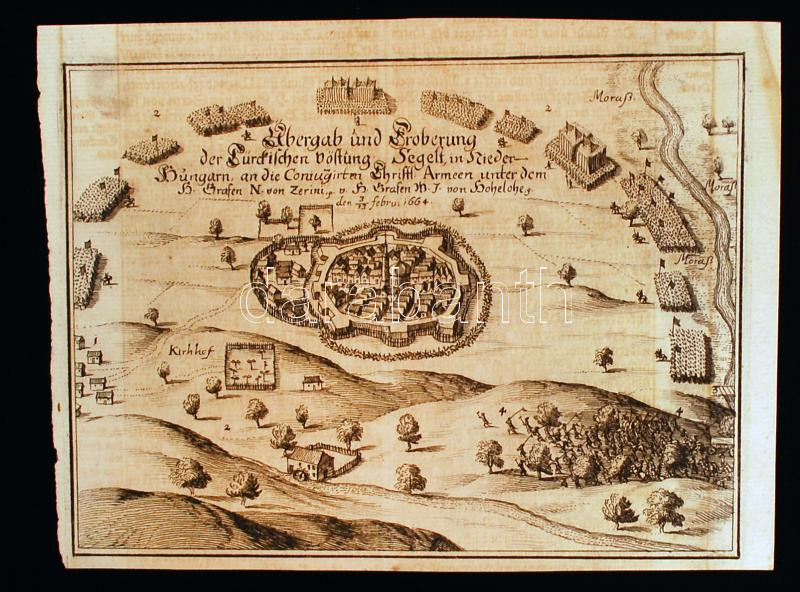 Übergab und Eroberung
der Türckischen vöstung Segelt, in Nieder-
Hungarn, an die Coniugirten Christl: Armeen unter dem
H. Grafen N. von Zerini, v. H. Grafen W. J. von Hohelohe,
den 3/13 februi 1664.
Moraß.
Moraß
Moraß
Kirhhof
databanth
2
1
2
4
4